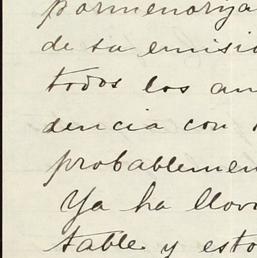 pormenoriza
de su emisi
todos los an
dencia con
probablemen
Ya ha llov
table y esto